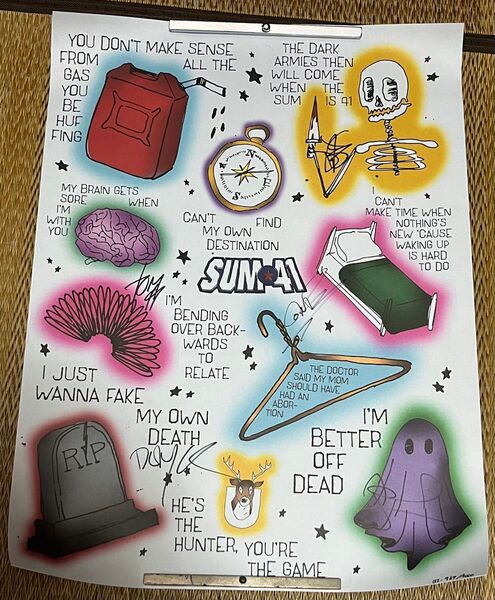 YOU DON'T MAKE SENSE
FROM ALL THE
GAS
YOU
BE
HUF
FING
THE DARK
ARMIES THEN
WILL COME
WHEN THE
SUM IS 41
MY BRAIN GETS
SORE WHEN
I'M
WITH
YOU
CAN'T FIND
MY OWN
DESTINATION
I
CAN'T
MAKE TIME WHEN
NOTHING'S
NEW 'CAUSE
WAKING UP
IS HARD
TO DO
SUM 41
I'M
BENDING
OVER BACK-
WARDS
TO
RELATE
THE DOCTOR
SAID MY MOM
SHOULD HAVE
HAD AN
ABOR-
TION
I JUST
WANNA FAKE
MY OWN
DEATH
I'M
BETTER
OFF
DEAD
RIP
HE'S
THE
HUNTER, YOU'RE
THE GAME